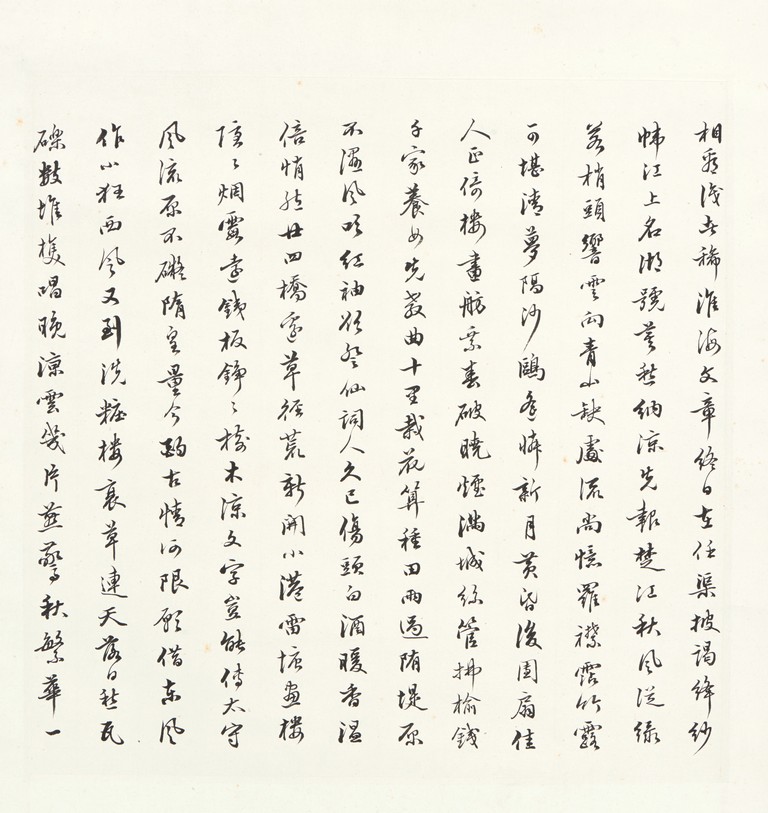 相看稀淮海文章終日在任渠披謁絳紗
幃江上名湖號莫愁納涼先報楚江秋風從綠
若梢頭響雲向青山缺處流尚憶羅襟霑竹露
可堪清夢隔沙鷗遙憐新月黃昏後團扇佳
人正倚樓畫舫乘春破曉煙滿城絲管拂榆錢
千家養女先教曲十里栽花算種田雨過隋堤原
不濕風吹紅袖欲登仙詞人久已傷頭白酒暖香溫
倍悄然廿四橋邊草徑荒新開小港雷塘畫樓
隱〻烟霞遠鐵板錚〻樹木涼文字豈能傳太守
風流原不礙隋皇量今酌古情何限願借東風
作小狂西風又到洗粧樓衰草連天落日愁瓦
礫數堆樵唱晚涼雲幾片燕驚秋繁華一